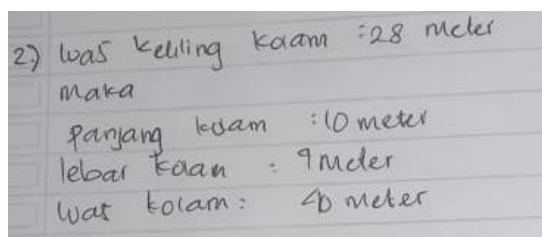 2) luas keliling kaam : 28 meter
maka
panjang kolam : 10 meter
lebar kolam : 9 meter
luas kolam : 40 meter